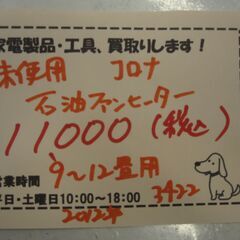 家電製品・工具、買取りします!
未使用 コロナ
石油ファンヒーター
11000(税込)
9～12畳用
営業時間
平日・土曜日10:00～18:00
3422
2012年